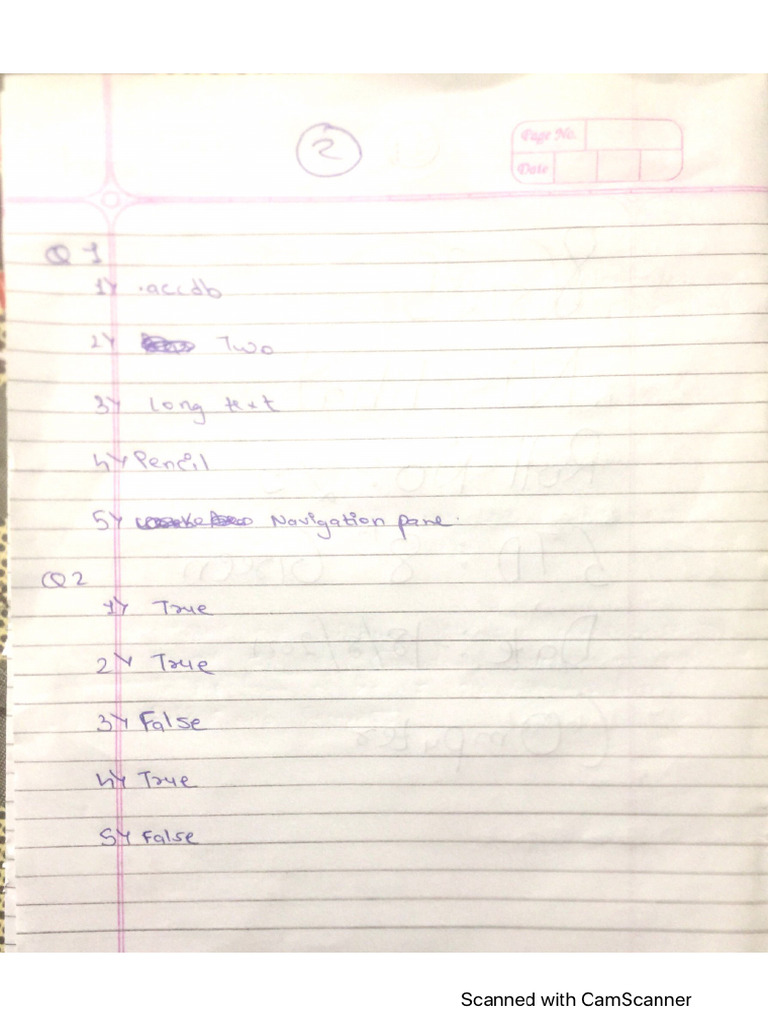 2
Page No.
Date
Q 1
1) .accdb
2) Two
3) Long text
4) Pencil
5) Navigation pane.
Q 2
1) True
2) True
3) False
4) True
5) False
Scanned with CamScanner